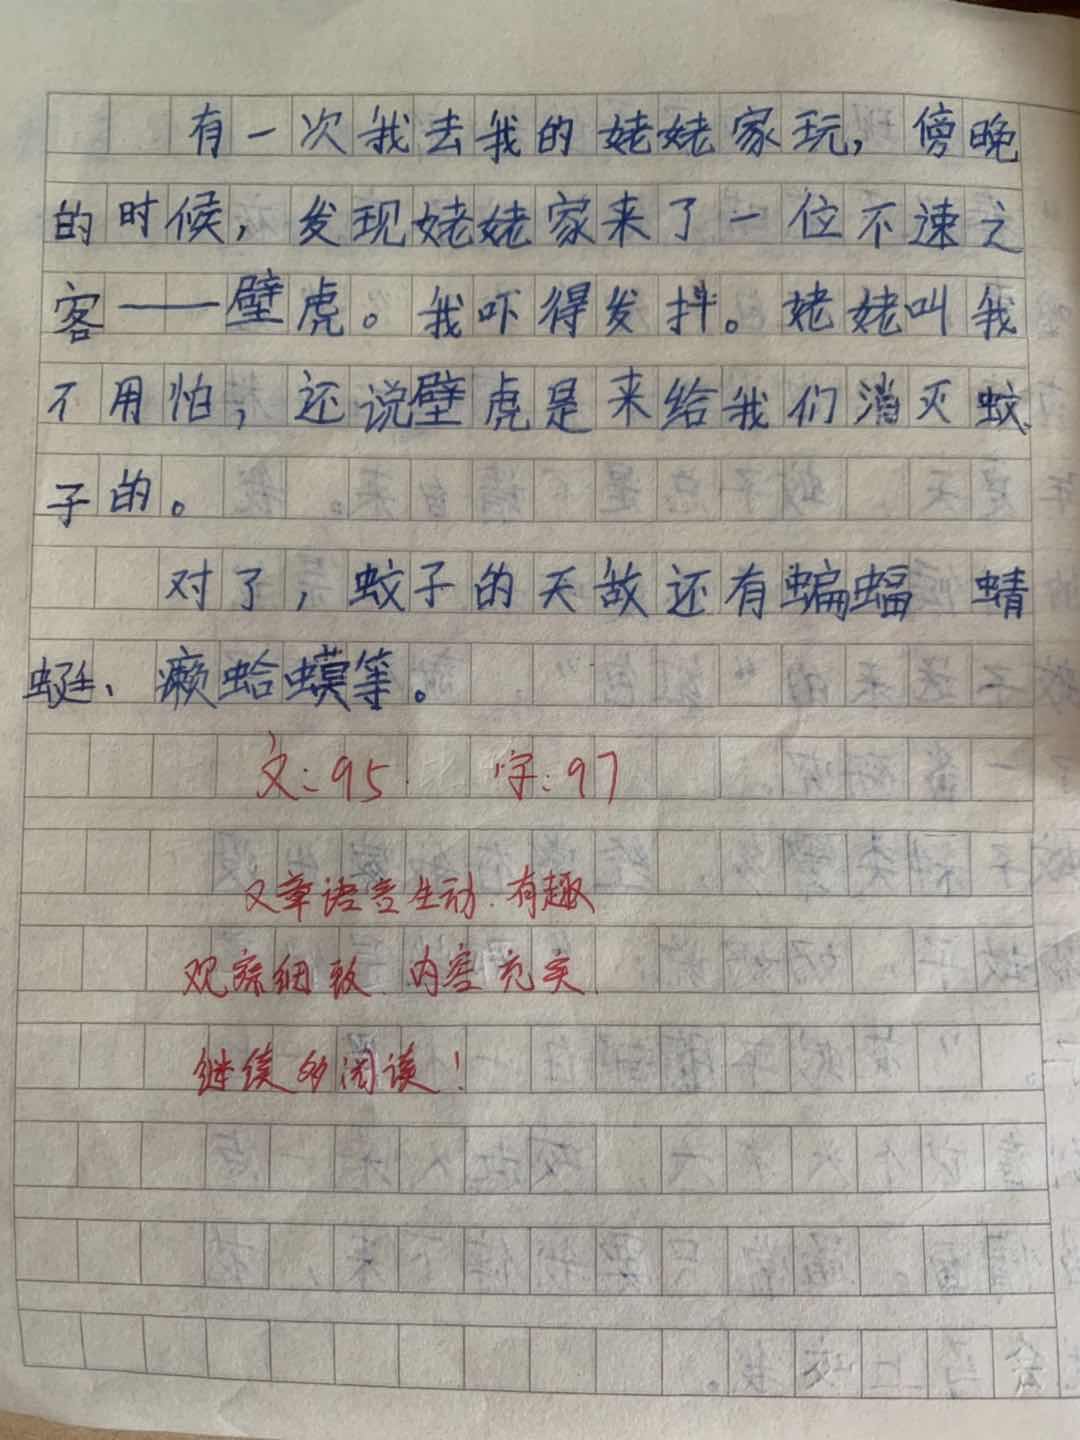 有一次我去我的姥姥家玩，傍晚
的时候，发现姥姥家来了一位不速之
客——壁虎。我吓得发抖。姥姥叫我
不用怕，还说壁虎是来给我们消灭蚊
子的。
对了，蚊子的天敌还有蝙蝠 蜻
蜓、癞蛤蟆等。
文：95. 字：97
文章语言生动.有趣
观察细致.内容充实.
继续多阅读！